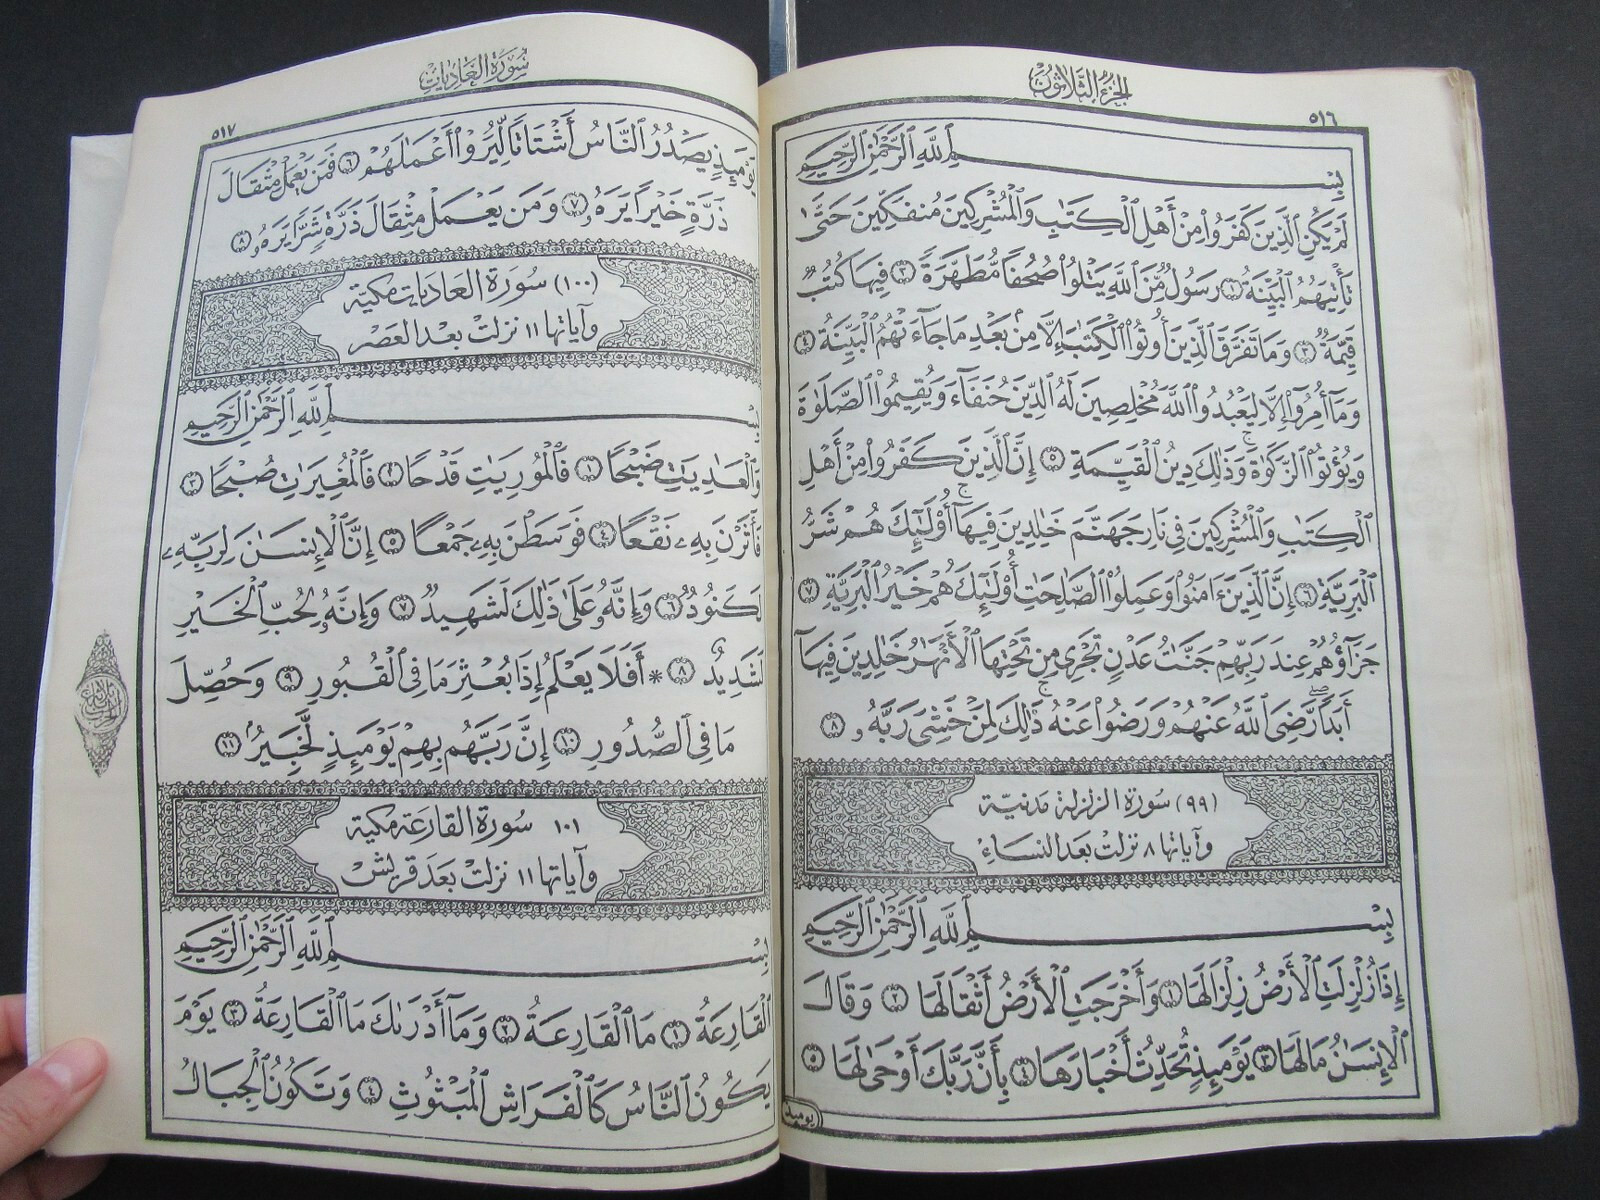 الجزء الثلاثون
٥١٦
بِسْمِ ٱللَّهِ ٱلرَّحْمَٰنِ ٱلرَّحِيمِ
لَمْ يَكُنِ ٱلَّذِينَ كَفَرُوا۟ مِنْ أَهْلِ ٱلْكِتَٰبِ وَٱلْمُشْرِكِينَ مُنفَكِّينَ حَتَّىٰ
تَأْتِيَهُمُ ٱلْبَيِّنَةُ ١ رَسُولٌ مِّنَ ٱللَّهِ يَتْلُوا۟ صُحُفًا مُّطَهَّرَةً ٢ فِيهَا كُتُبٌ
قَيِّمَةٌ ٣ وَمَا تَفَرَّقَ ٱلَّذِينَ أُوتُوا۟ ٱلْكِتَٰبَ إِلَّا مِنۢ بَعْدِ مَا جَآءَتْهُمُ ٱلْبَيِّنَةُ ٤
وَمَآ أُمِرُوٓا۟ إِلَّا لِيَعْبُدُوا۟ ٱللَّهَ مُخْلِصِينَ لَهُ ٱلدِّينَ حُنَفَآءَ وَيُقِيمُوا۟ ٱلصَّلَوٰةَ
وَيُؤْتُوا۟ ٱلزَّكَوٰةَ ۚ وَذَٰلِكَ دِينُ ٱلْقَيِّمَةِ ٥ إِنَّ ٱلَّذِينَ كَفَرُوا۟ مِنْ أَهْلِ
ٱلْكِتَٰبِ وَٱلْمُشْرِكِينَ فِى نَارِ جَهَنَّمَ خَٰلِدِينَ فِيهَآ ۚ أُو۟لَٰٓئِكَ هُمْ شَرُّ
ٱلْبَرِيَّةِ ٦ إِنَّ ٱلَّذِينَ ءَامَنُوا۟ وَعَمِلُوا۟ ٱلصَّٰلِحَٰتِ أُو۟لَٰٓئِكَ هُمْ خَيْرُ ٱلْبَرِيَّةِ ٧
جَزَآؤُهُمْ عِندَ رَبِّهِمْ جَنَّٰتُ عَدْنٍ تَجْرِى مِن تَحْتِهَا ٱلْأَنْهَٰرُ خَٰلِدِينَ فِيهَآ
أَبَدًا ۖ رَّضِىَ ٱللَّهُ عَنْهُمْ وَرَضُوا۟ عَنْهُ ۚ ذَٰلِكَ لِمَنْ خَشِىَ رَبَّهُۥ ٨
(٩٩) سورة الزلزلة مدنية
وآياتها ٨ نزلت بعد النساء
بِسْمِ ٱللَّهِ ٱلرَّحْمَٰنِ ٱلرَّحِيمِ
إِذَا زُلْزِلَتِ ٱلْأَرْضُ زِلْزَالَهَا ١ وَأَخْرَجَتِ ٱلْأَرْضُ أَثْقَالَهَا ٢ وَقَالَ
ٱلْإِنسَٰنُ مَا لَهَا ٣ يَوْمَئِذٍ تُحَدِّثُ أَخْبَارَهَا ٤ بِأَنَّ رَبَّكَ أَوْحَىٰ لَهَا ٥
يومئذ
سورة العاديات
٥١٧
يَوْمَئِذٍ يَصْدُرُ ٱلنَّاسُ أَشْتَاتًا لِّيُرَوْا۟ أَعْمَٰلَهُمْ ٦ فَمَن يَعْمَلْ مِثْقَالَ
ذَرَّةٍ خَيْرًا يَرَهُۥ ٧ وَمَن يَعْمَلْ مِثْقَالَ ذَرَّةٍ شَرًّا يَرَهُۥ ٨
(١٠٠) سورة العاديات مكية
وآياتها ١١ نزلت بعد العصر
بِسْمِ ٱللَّهِ ٱلرَّحْمَٰنِ ٱلرَّحِيمِ
وَٱلْعَٰدِيَٰتِ ضَبْحًا ١ فَٱلْمُورِيَٰتِ قَدْحًا ٢ فَٱلْمُغِيرَٰتِ صُبْحًا ٣
فَأَثَرْنَ بِهِۦ نَقْعًا ٤ فَوَسَطْنَ بِهِۦ جَمْعًا ٥ إِنَّ ٱلْإِنسَٰنَ لِرَبِّهِۦ
لَكَنُودٌ ٦ وَإِنَّهُۥ عَلَىٰ ذَٰلِكَ لَشَهِيدٌ ٧ وَإِنَّهُۥ لِحُبِّ ٱلْخَيْرِ
لَشَدِيدٌ ٨ * أَفَلَا يَعْلَمُ إِذَا بُعْثِرَ مَا فِى ٱلْقُبُورِ ٩ وَحُصِّلَ
مَا فِى ٱلصُّدُورِ ١٠ إِنَّ رَبَّهُم بِهِمْ يَوْمَئِذٍ لَّخَبِيرٌۢ ١١
١٠١ سورة القارعة مكية
وآياتها ١١ نزلت بعد قريش
بِسْمِ ٱللَّهِ ٱلرَّحْمَٰنِ ٱلرَّحِيمِ
ٱلْقَارِعَةُ ١ مَا ٱلْقَارِعَةُ ٢ وَمَآ أَدْرَىٰكَ مَا ٱلْقَارِعَةُ ٣ يَوْمَ
يَكُونُ ٱلنَّاسُ كَٱلْفَرَاشِ ٱلْمَبْثُوثِ ٤ وَتَكُونُ ٱلْجِبَالُ